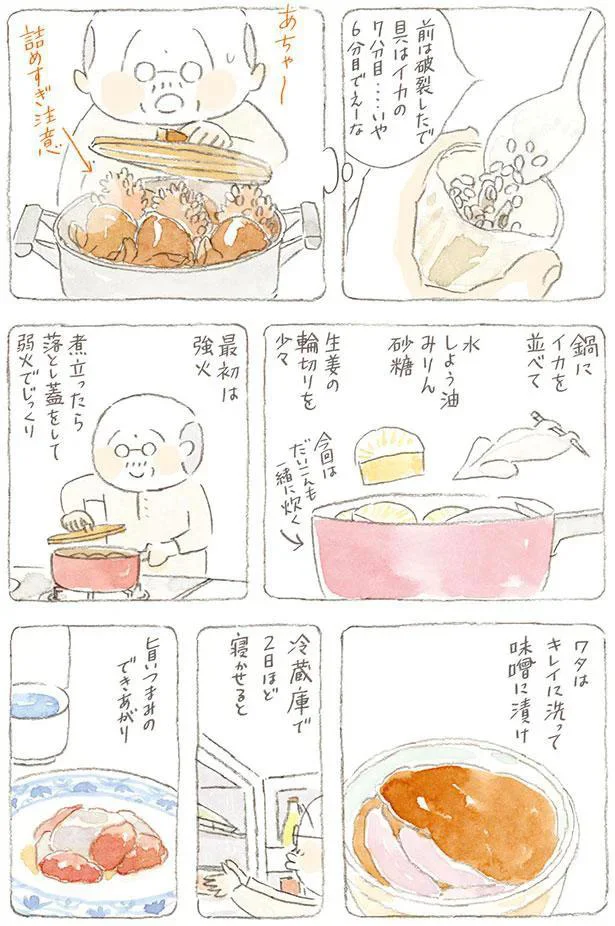 前は破裂したで
具はイカの
7、8分目‥‥いや
6分目でえーな
あちゃー
詰めすぎ注意
鍋に
イカを
並べて
水
しょう油
みりん
砂糖
生姜の
輪切りを
少々
今回は
だいこんも
一緒に炊く
最初は
強火
煮立ったら
落とし蓋をして
弱火でじっくり
ワタは
キレイに洗って
味噌に漬け
冷蔵庫で
2日ほど
寝かせると
旨いつまみの
できあがり